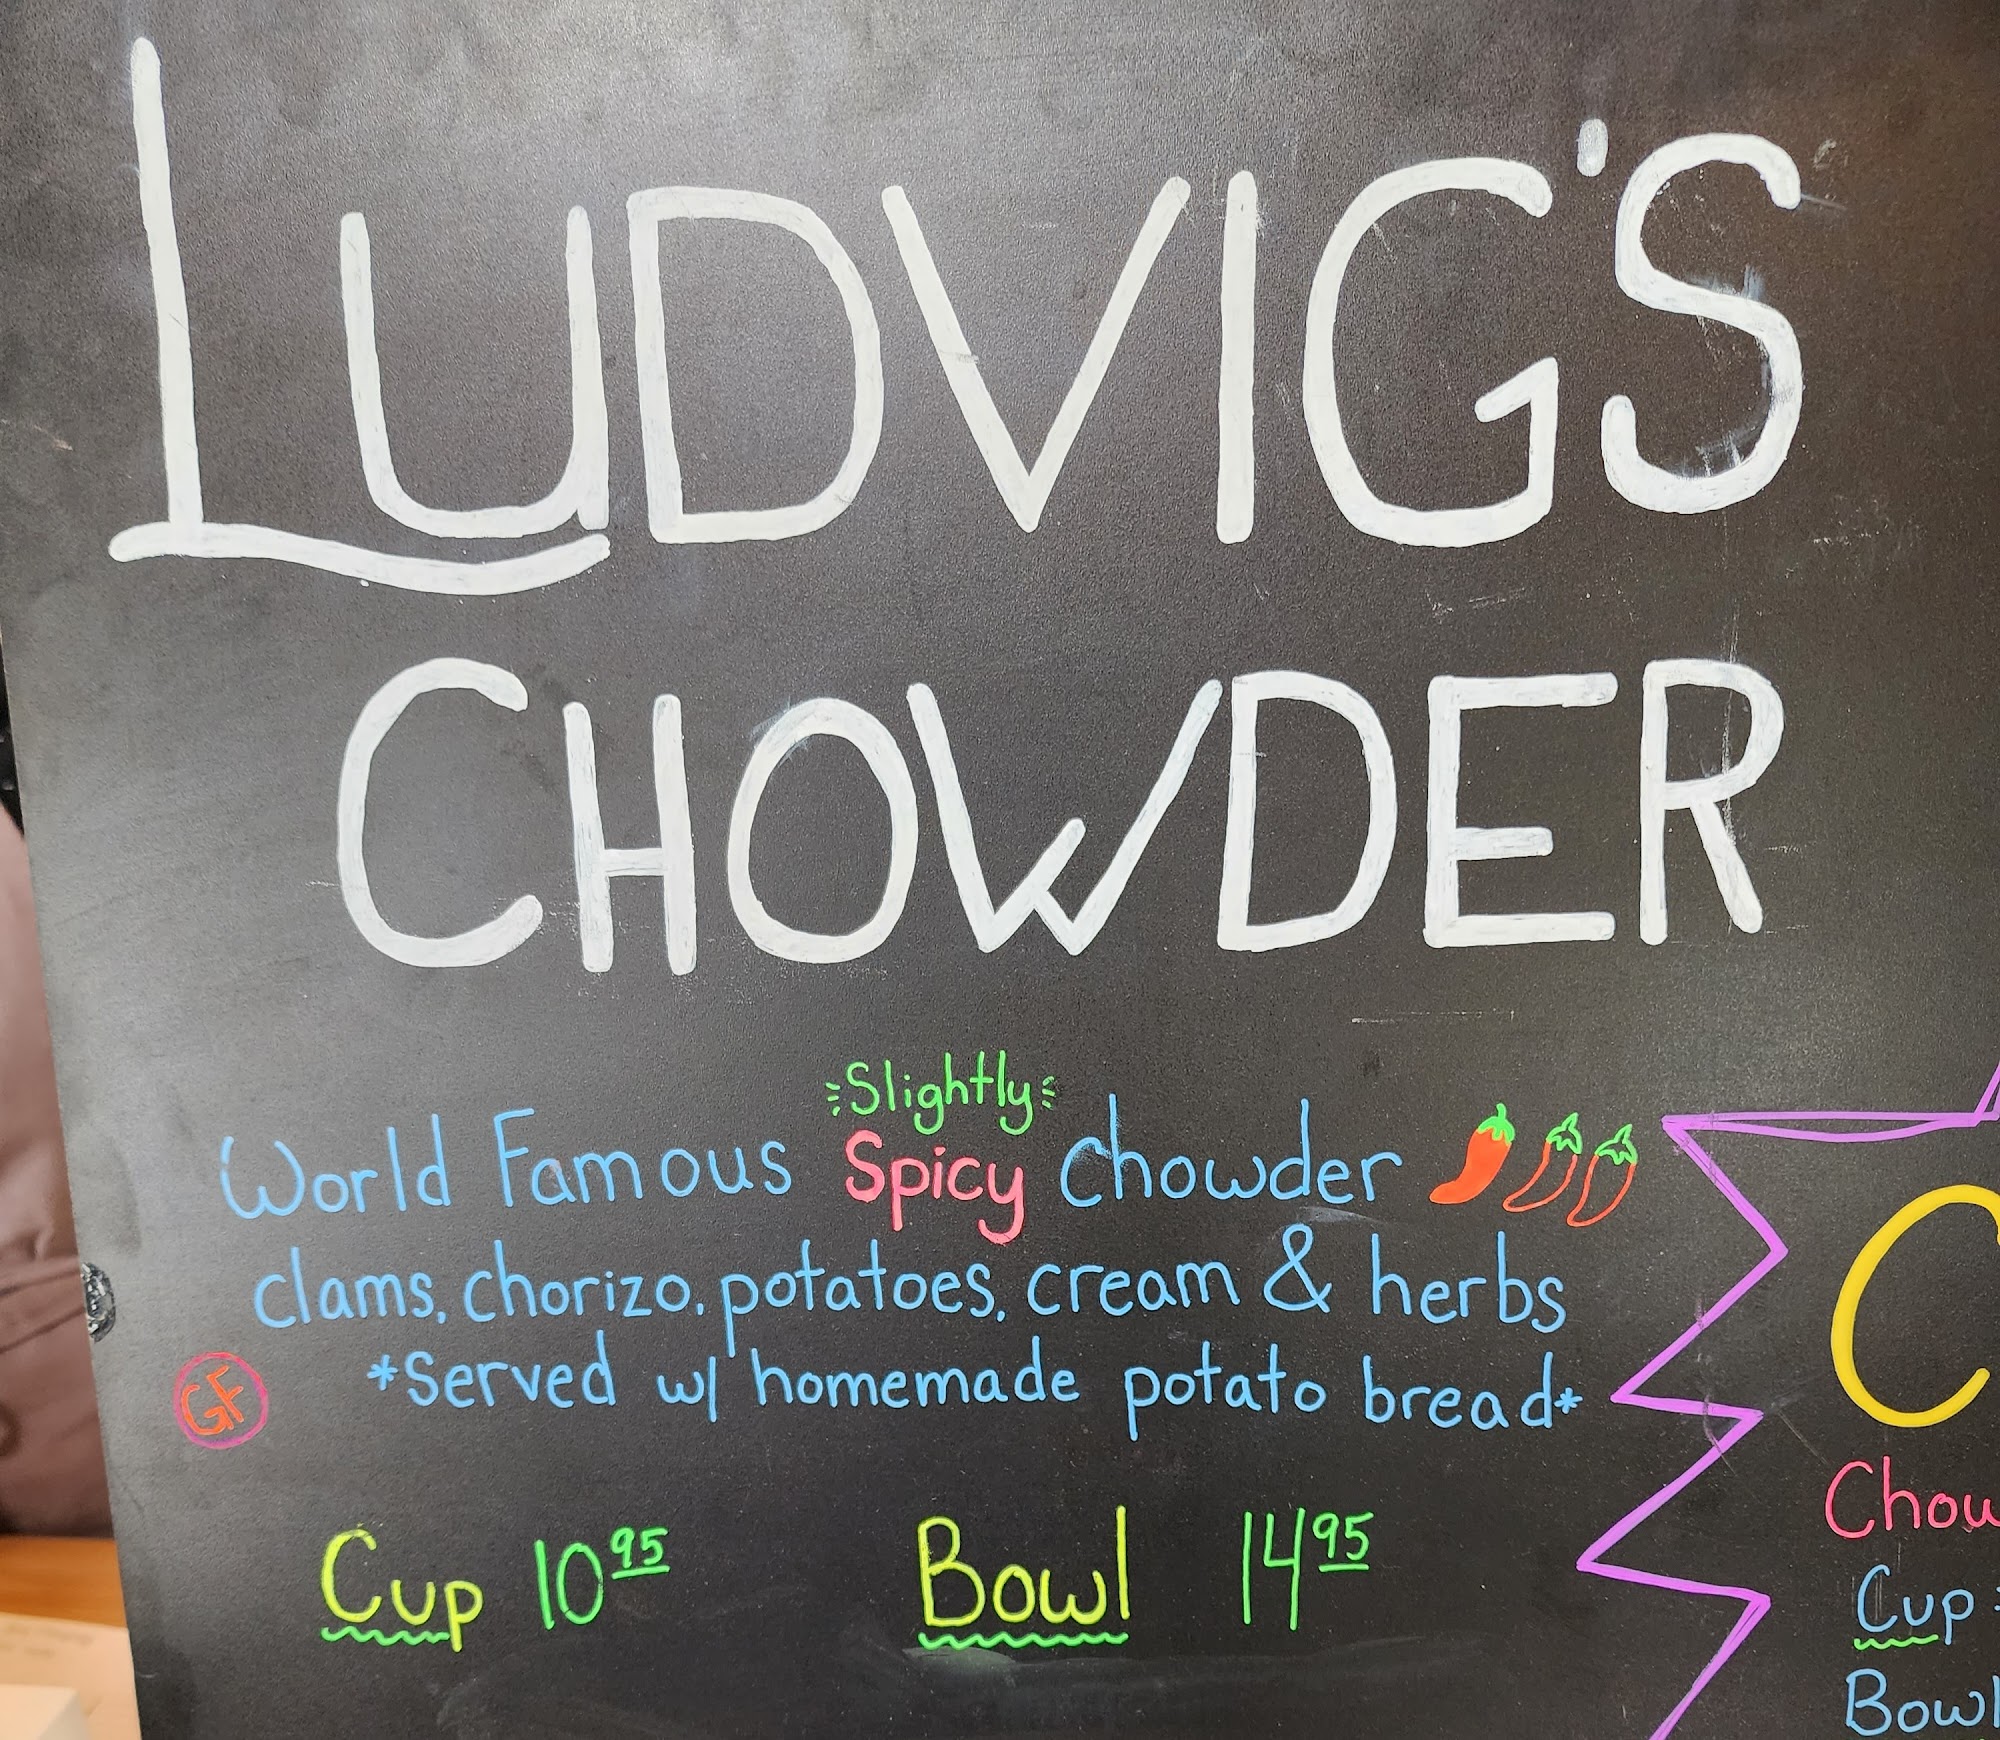 LUDVIG'S
CHOWDER
Slightly
World Famous Spicy Chowder
clams, chorizo, potatoes, cream & herbs
GF
*Served w/ homemade potato bread*
Cup 10 95
Bowl 14 95
C
Chow
Cup
Bowl